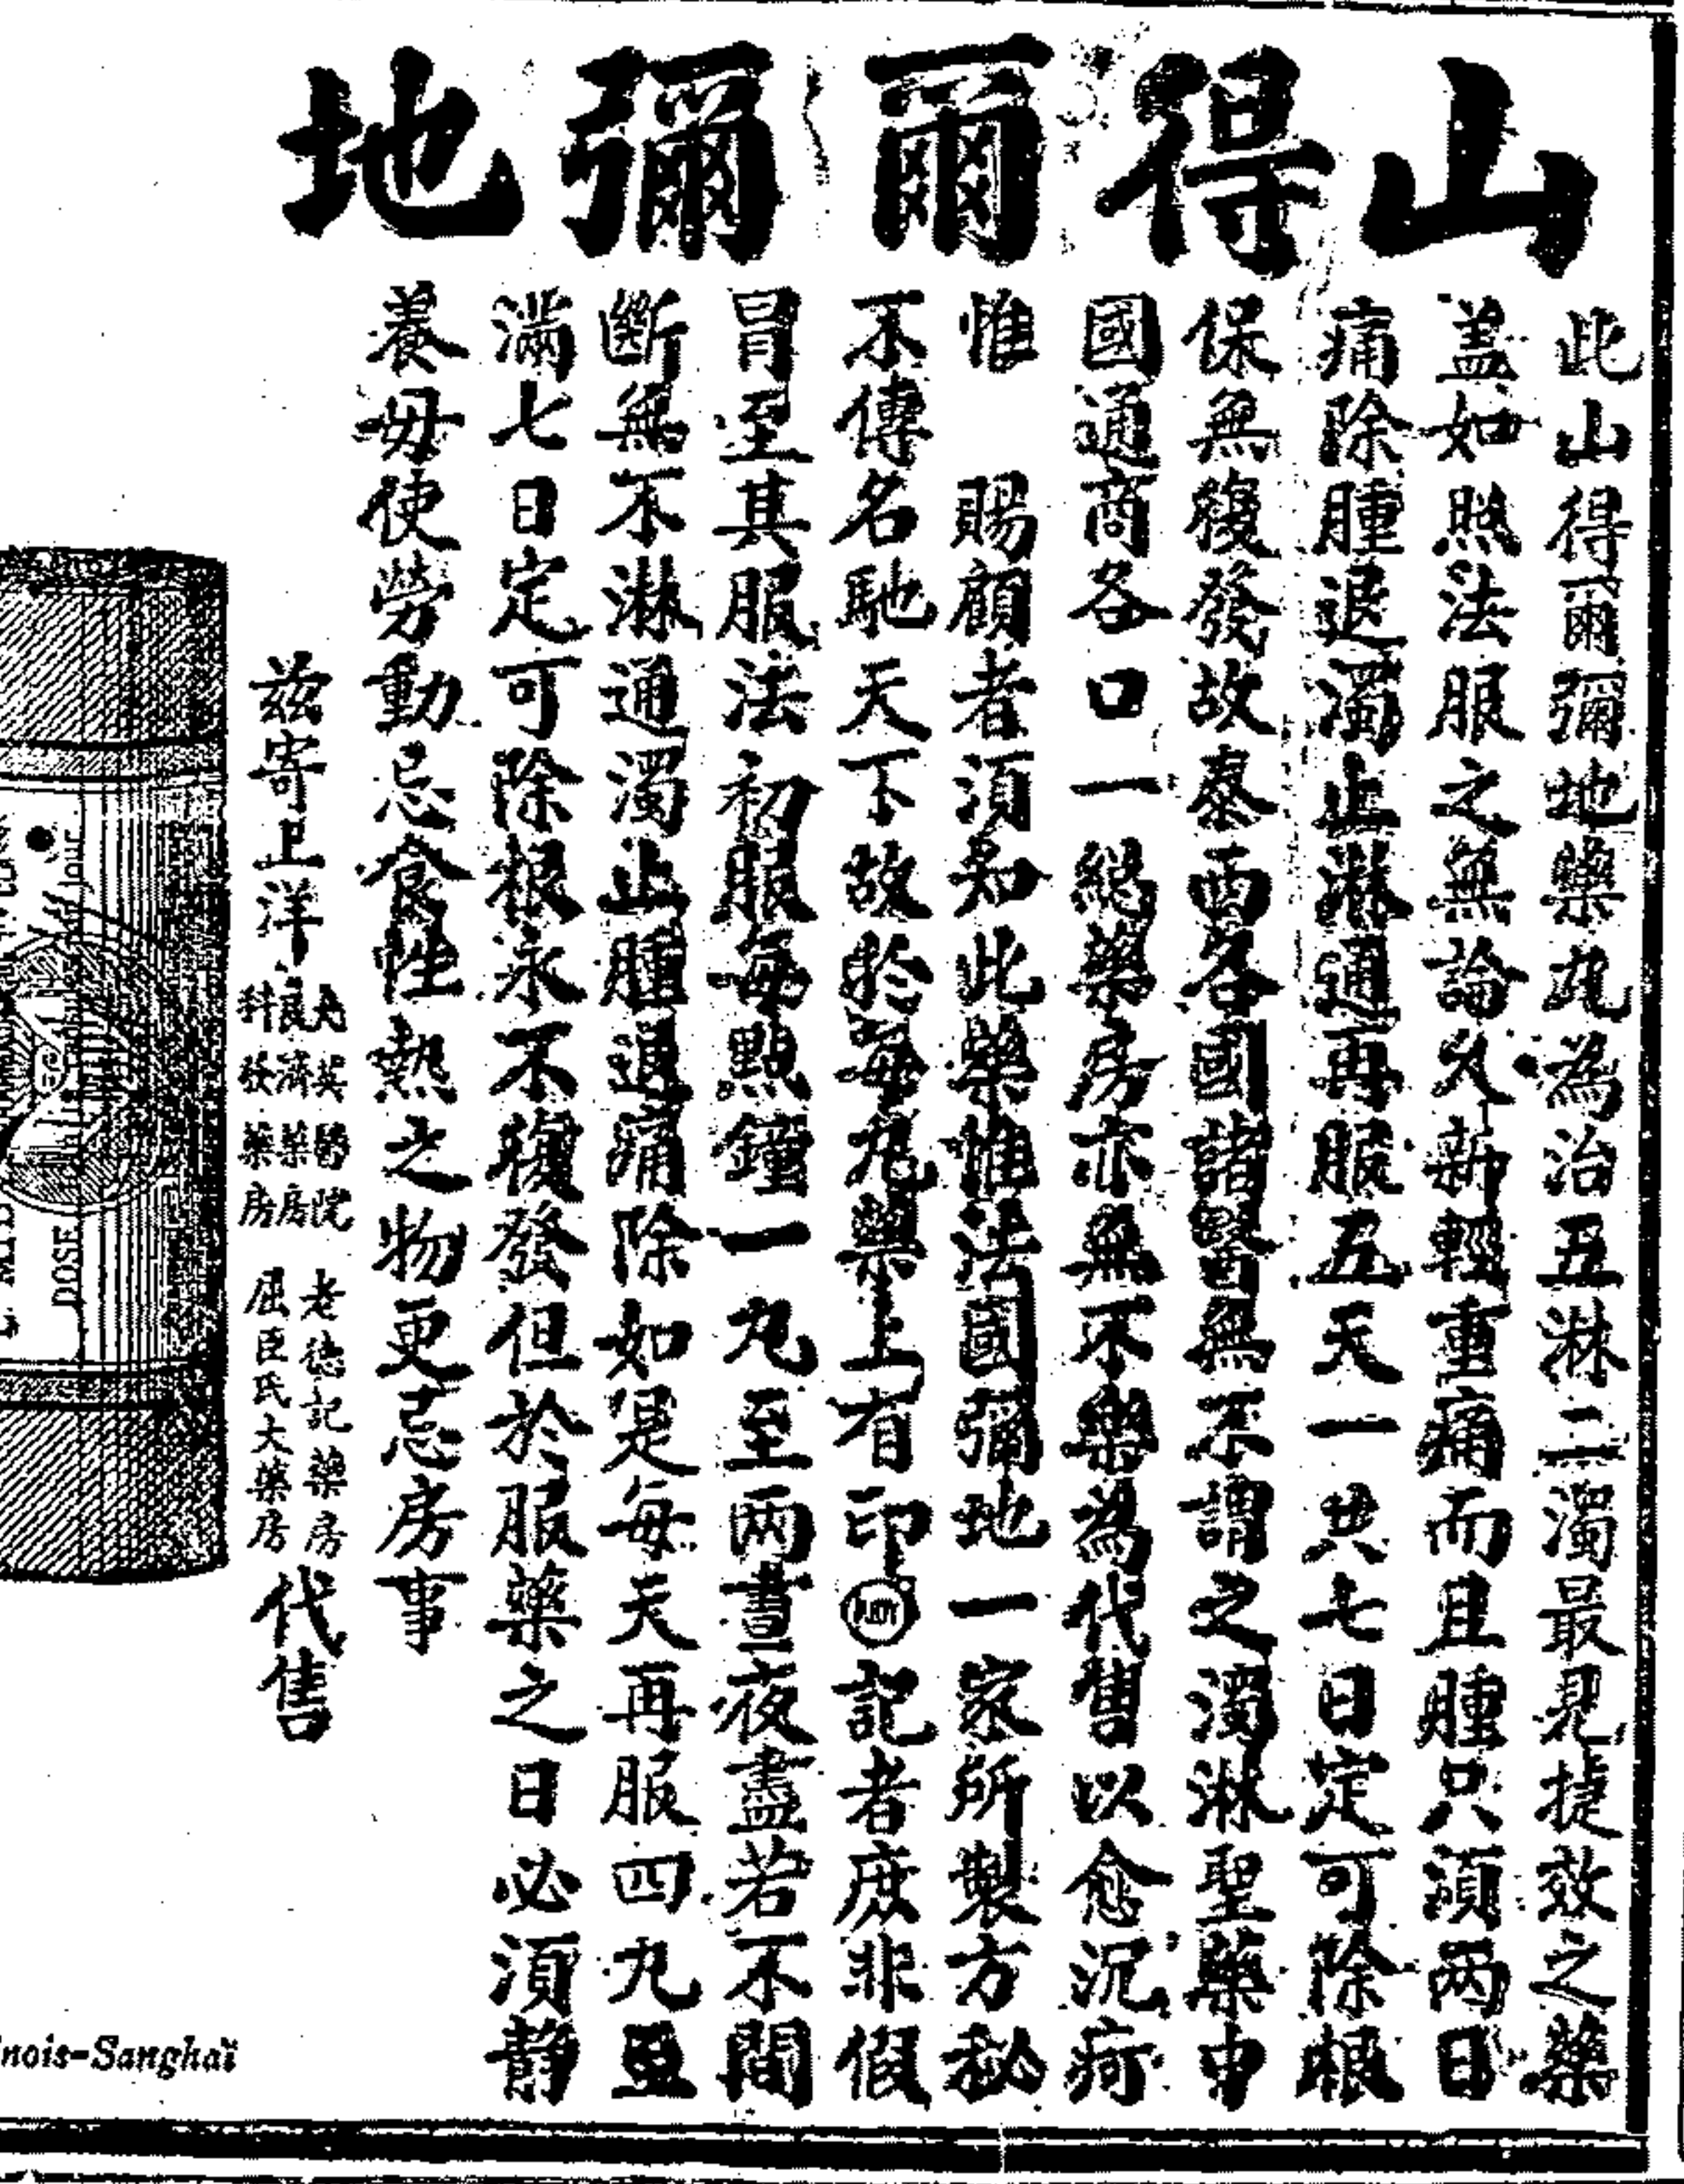 山得爾彌地
此山得爾彌地藥丸為治五淋二濁最見捷效之藥
盖如照法服之無論久新輕重痛而且腫只須两日
痛除腫退濁止淋通再服五天一共七日定可除根
保無復發故泰西各國諸醫無不謂之濁淋聖藥中
國通商各口一總藥房亦無不樂為代售以愈沉疴
惟 賜顧者須知此藥惟法國彌地一家所製方秘
不傳名馳天下故於每丸藥上有印MIDY記者庶非假
冒至其服法初服每點鐘一丸至两晝夜盡若不間
斷無不淋通濁止腫退痛除如是每天再服四丸至
滿七日定可除根永不復發但於服藥之日必須静
養毋使勞動忌食性熱之物更忌房事
兹寄上洋
大英醫院
良濟藥房
科發藥房
老德記藥房
屈臣氏大藥房
代售
DOSE
jour
nois-Sanghaï